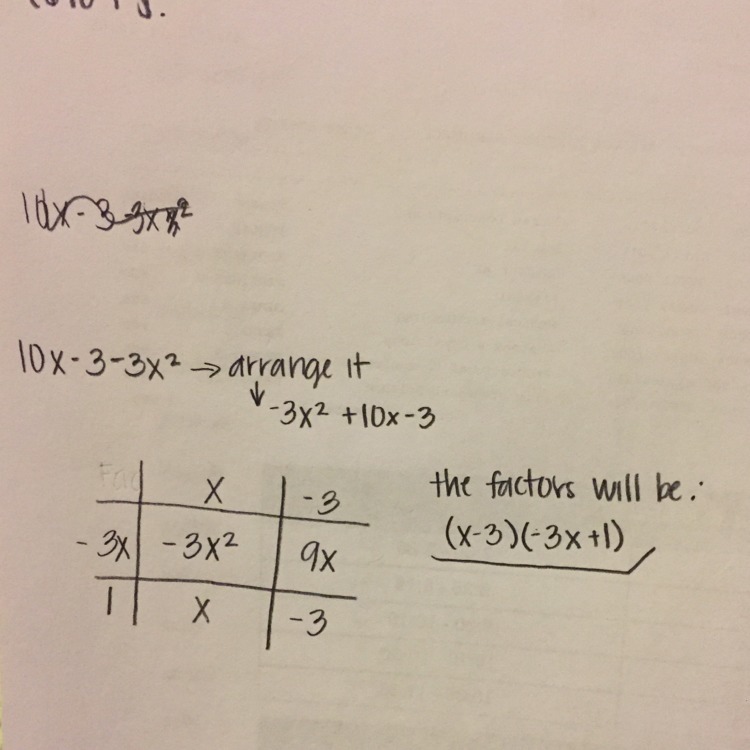 10x-3-3x²
10x-3-3x² → arrange it
↓ -3x² +10x-3
x -3
-3x -3x² 9x
1 x -3
the factors will be:
(x-3)(-3x+1)